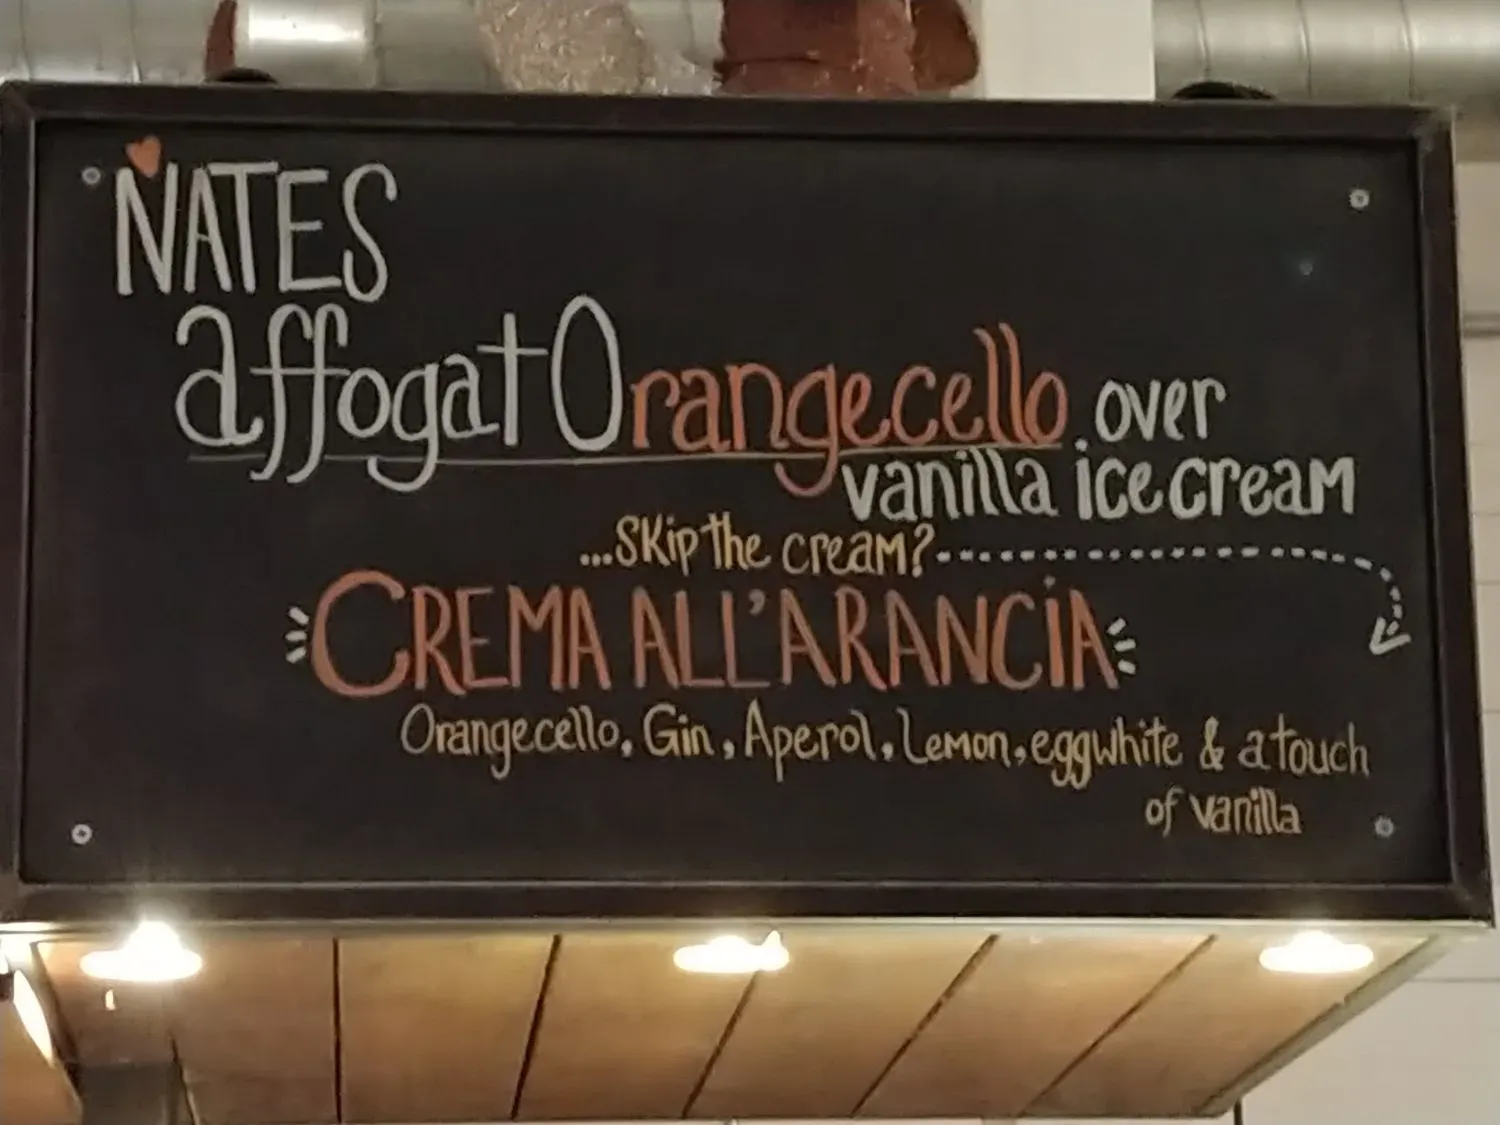 NATES
affogatOrangecello over
vanilla ice cream
...Skip the cream?
CREMA ALL'ARANCiA
Orangecello, Gin, Aperol, Lemon, eggwhite & a touch
of vanilla